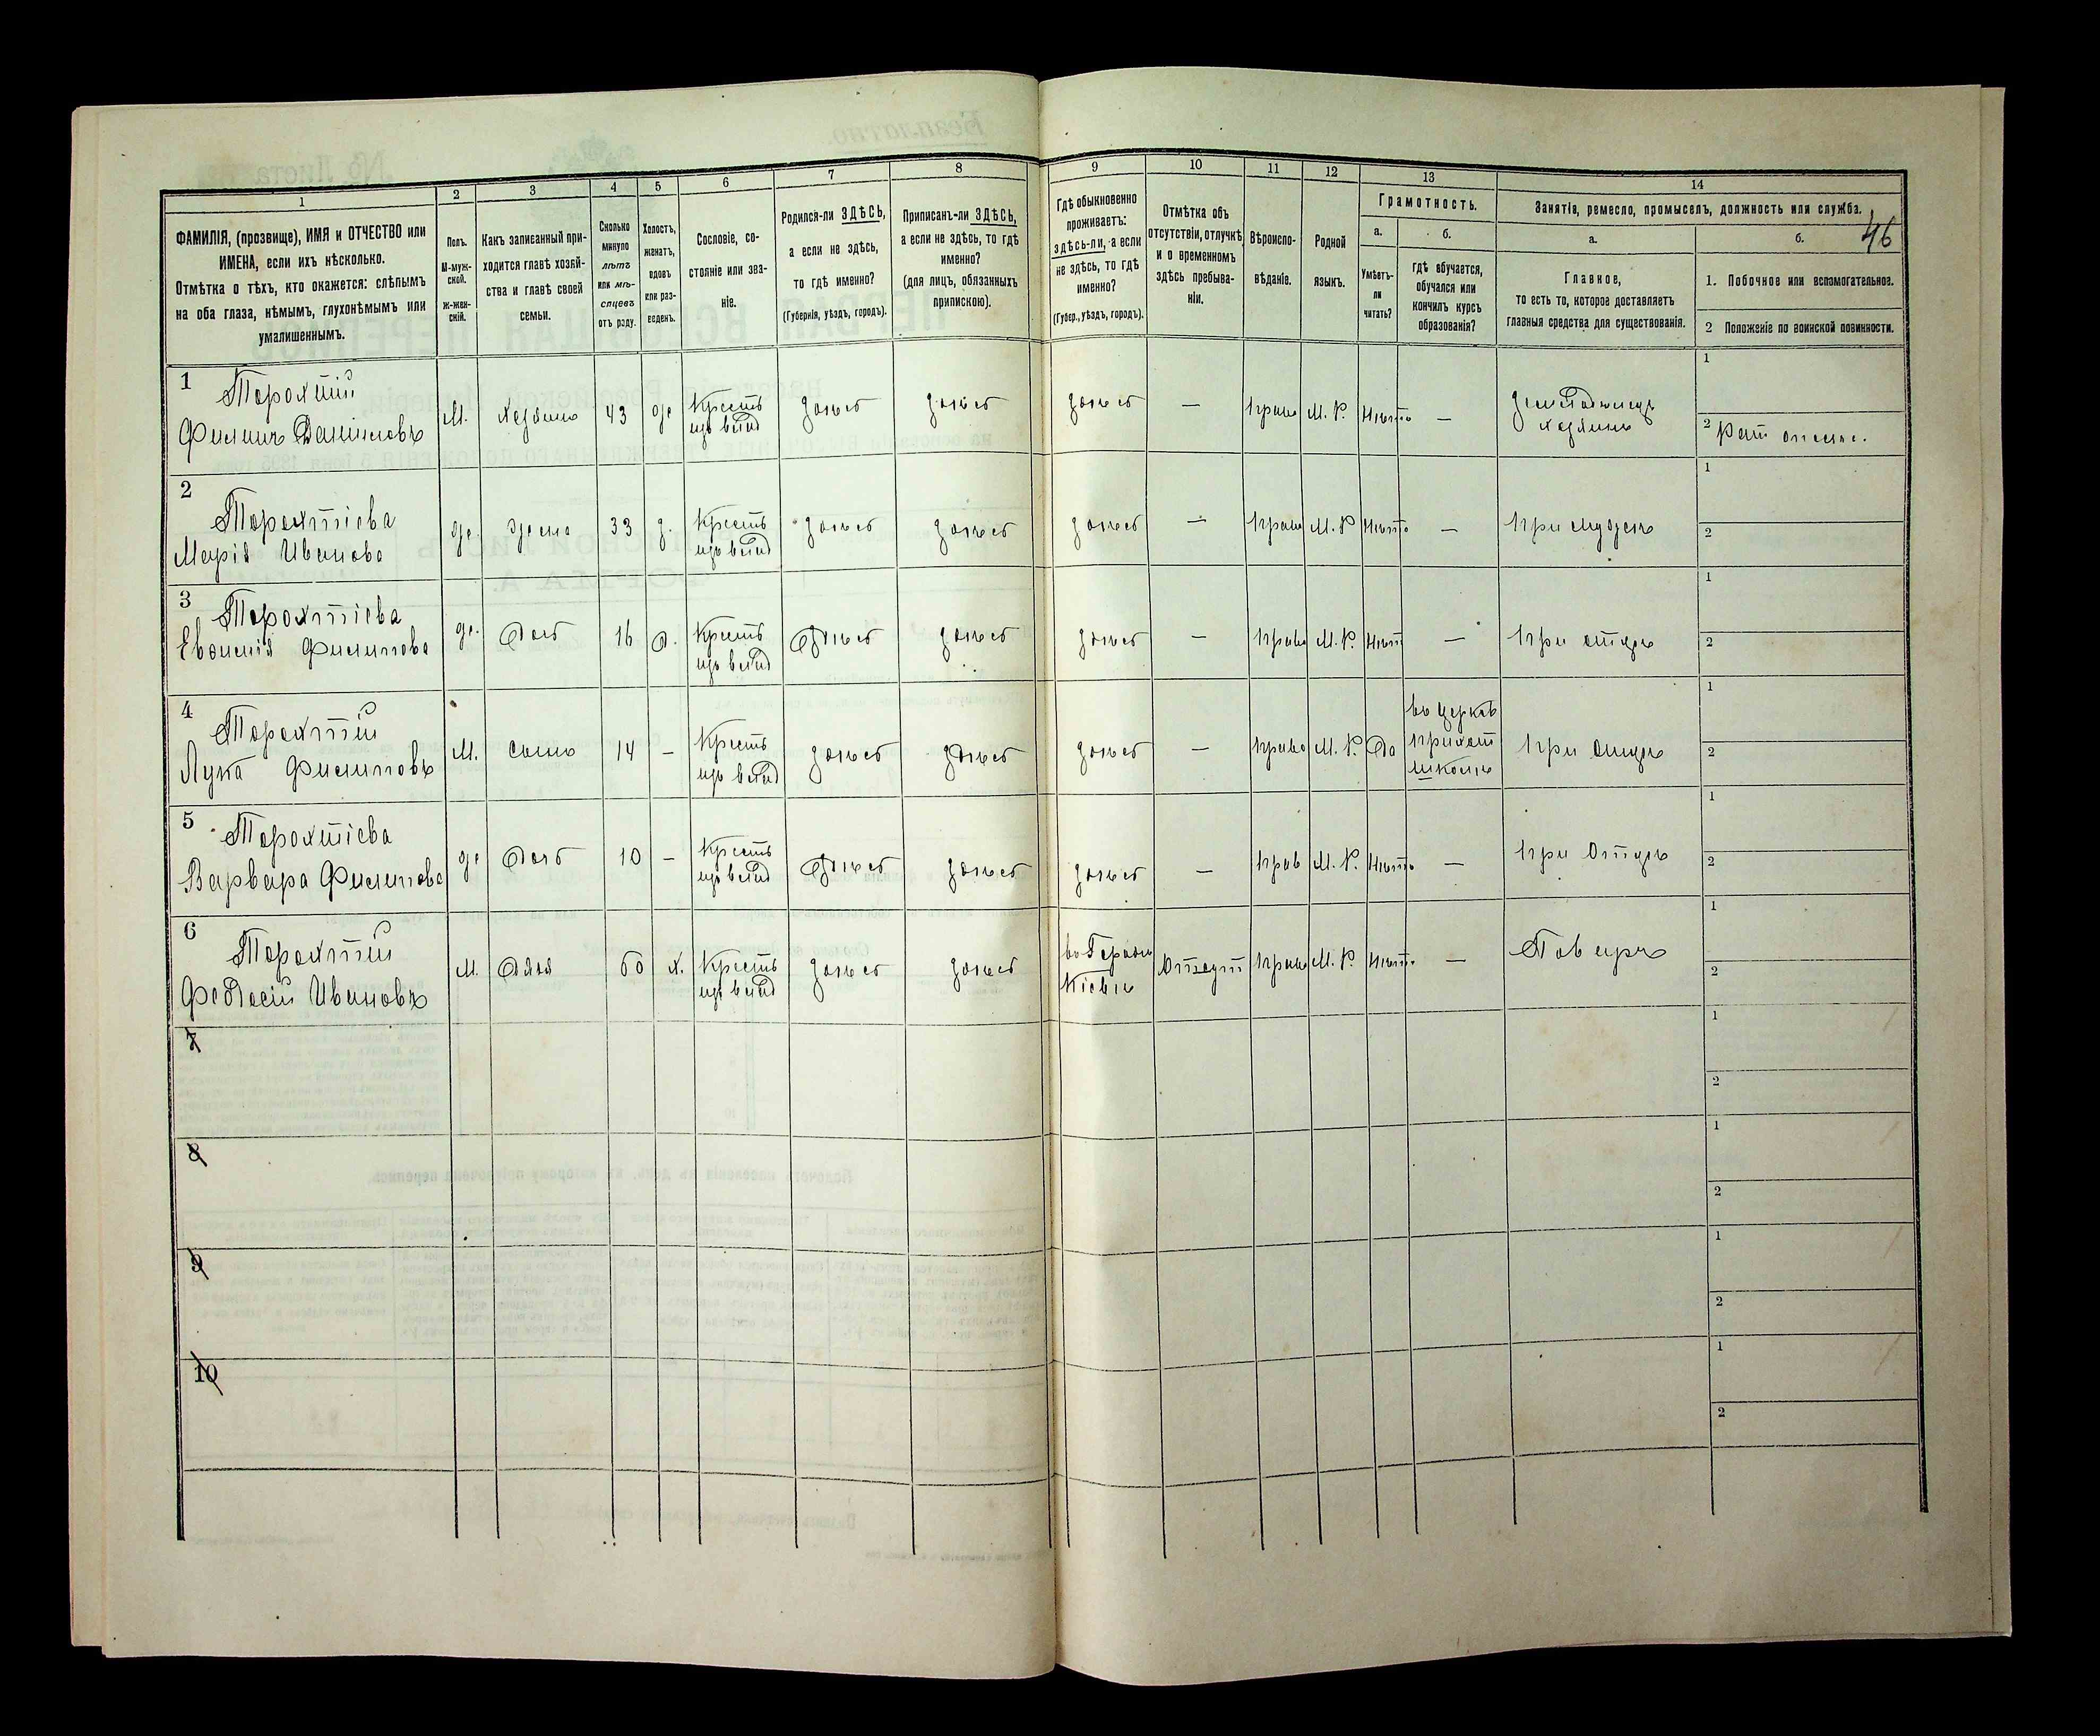 1
2
3
4
5
6
7
8
9
10
11
12
13
14
ФАМИЛІЯ, (прозвище), ИМЯ и ОТЧЕСТВО или
ИМЕНА, если ихъ нѣсколько.
Отмѣтка о тѣхъ, кто окажется: слѣпымъ
на оба глаза, нѣмымъ, глухонѣмымъ или
умалишеннымъ.
Полъ.
М-муж-
ской.
Ж-жен-
скій.
Какъ записанный при-
ходится главѣ хозяй-
ства и главѣ своей
семьи.
Сколько
минуло
лѣтъ
или мѣ-
сяцевъ
отъ роду.
Холостъ,
женатъ,
вдовъ
или раз-
веденъ.
Сословіе, со-
стояніе или зва-
ніе.
Родился-ли ЗДѢСЬ,
а если не здѣсь,
то гдѣ именно?
(Губернія, уѣздъ, городъ).
Приписанъ-ли ЗДѢСЬ,
а если не здѣсь, то гдѣ
именно?
(для лицъ, обязанныхъ
припискою).
Гдѣ обыкновенно
проживаетъ:
здѣсь-ли, а если
не здѣсь, то гдѣ
именно?
(Губер., уѣздъ, городъ).
Отмѣтка объ
отсутствіи, отлучкѣ
и о временномъ
здѣсь пребыва-
ніи.
Вѣроиспо-
вѣданіе.
Родной
языкъ.
Грамотность.
а.
б.
Умѣетъ-
ли
читать?
гдѣ обучается,
обучался или
кончилъ курсъ
образованія?
Занятія, ремесло, промыселъ, должность или служба.
46
а.
б.
Главное,
то есть то, которое доставляетъ
главныя средства для существованія.
1. Побочное или вспомогательное.
2 Положеніе по воинской повинности.
1
Филипъ Даниловъ
М.
Хозяинъ
43
ж
Крестъ
изъ влад
здѣсь
здѣсь
здѣсь
—
Прав
М. Р.
Нѣтъ
—
Земледѣлецъ
хозяинъ
1
2
2
Марія Иванова
же.
Жена
33
з.
Крестъ
изъ влад
здѣсь
здѣсь
здѣсь
—
Прав
М. Р
Нѣтъ
—
При мужѣ
1
2
3
Филипова
же.
Дочь
16
д.
Крестъ
изъ влад
Здѣсь
здѣсь
здѣсь
—
Прав
М. Р.
Нѣтъ
—
При отцѣ
1
2
4
Лука Филиповъ
М.
Сынъ
14
—
Крестъ
изъ влад
здѣсь
здѣсь
здѣсь
—
Прав
М. Р.
Да
въ церков
приход
школѣ
При отцѣ
1
2
5
Варвара Филипова
же
Дочь
10
—
Крестъ
изъ влад
Здѣсь
здѣсь
здѣсь
—
Прав
М. Р.
Нѣтъ
—
При Отцѣ
1
2
6
Феодосій Ивановъ
М.
Дядя
60
х.
Крестъ
изъ влад
здѣсь
здѣсь
въ Городѣ
Кіевѣ
Отсут
Прав
М. Р.
Нѣтъ
—
Поваръ
1
2
7
1
2
8
1
2
9
1
2
10
1
2